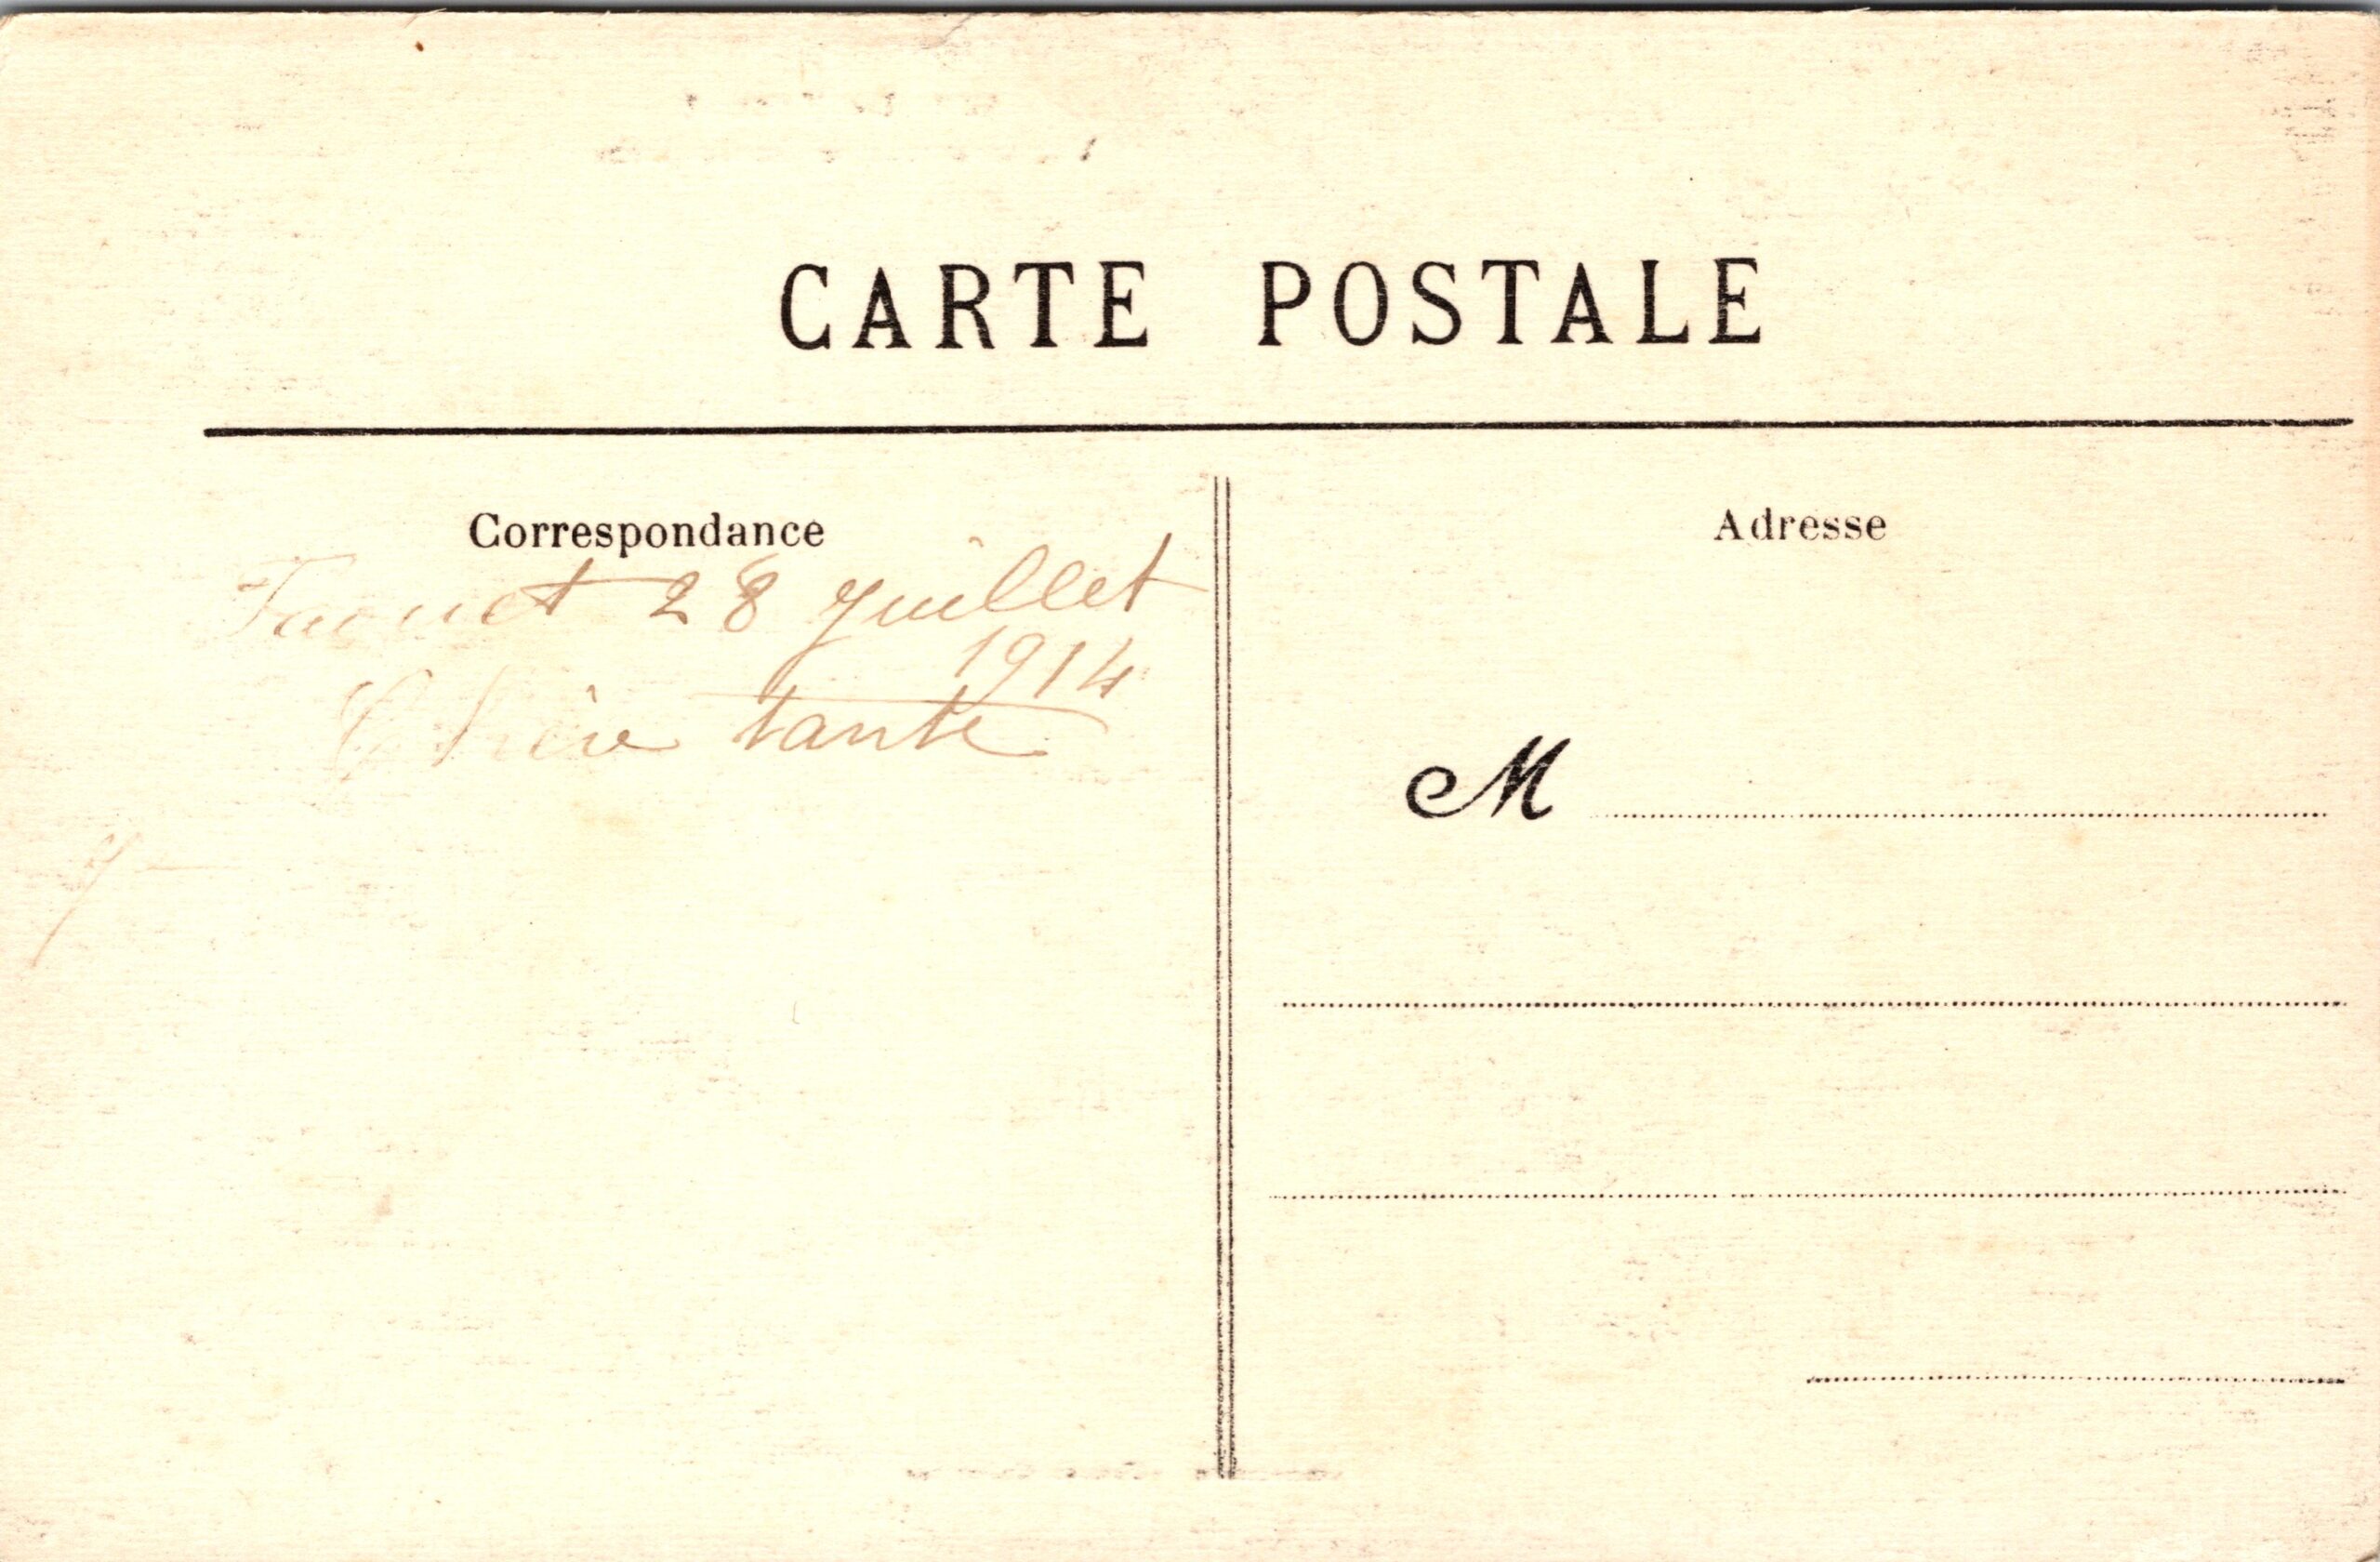 CARTE POSTALE
Correspondance
Adresse
28 juillet
1914
Chère tante
M